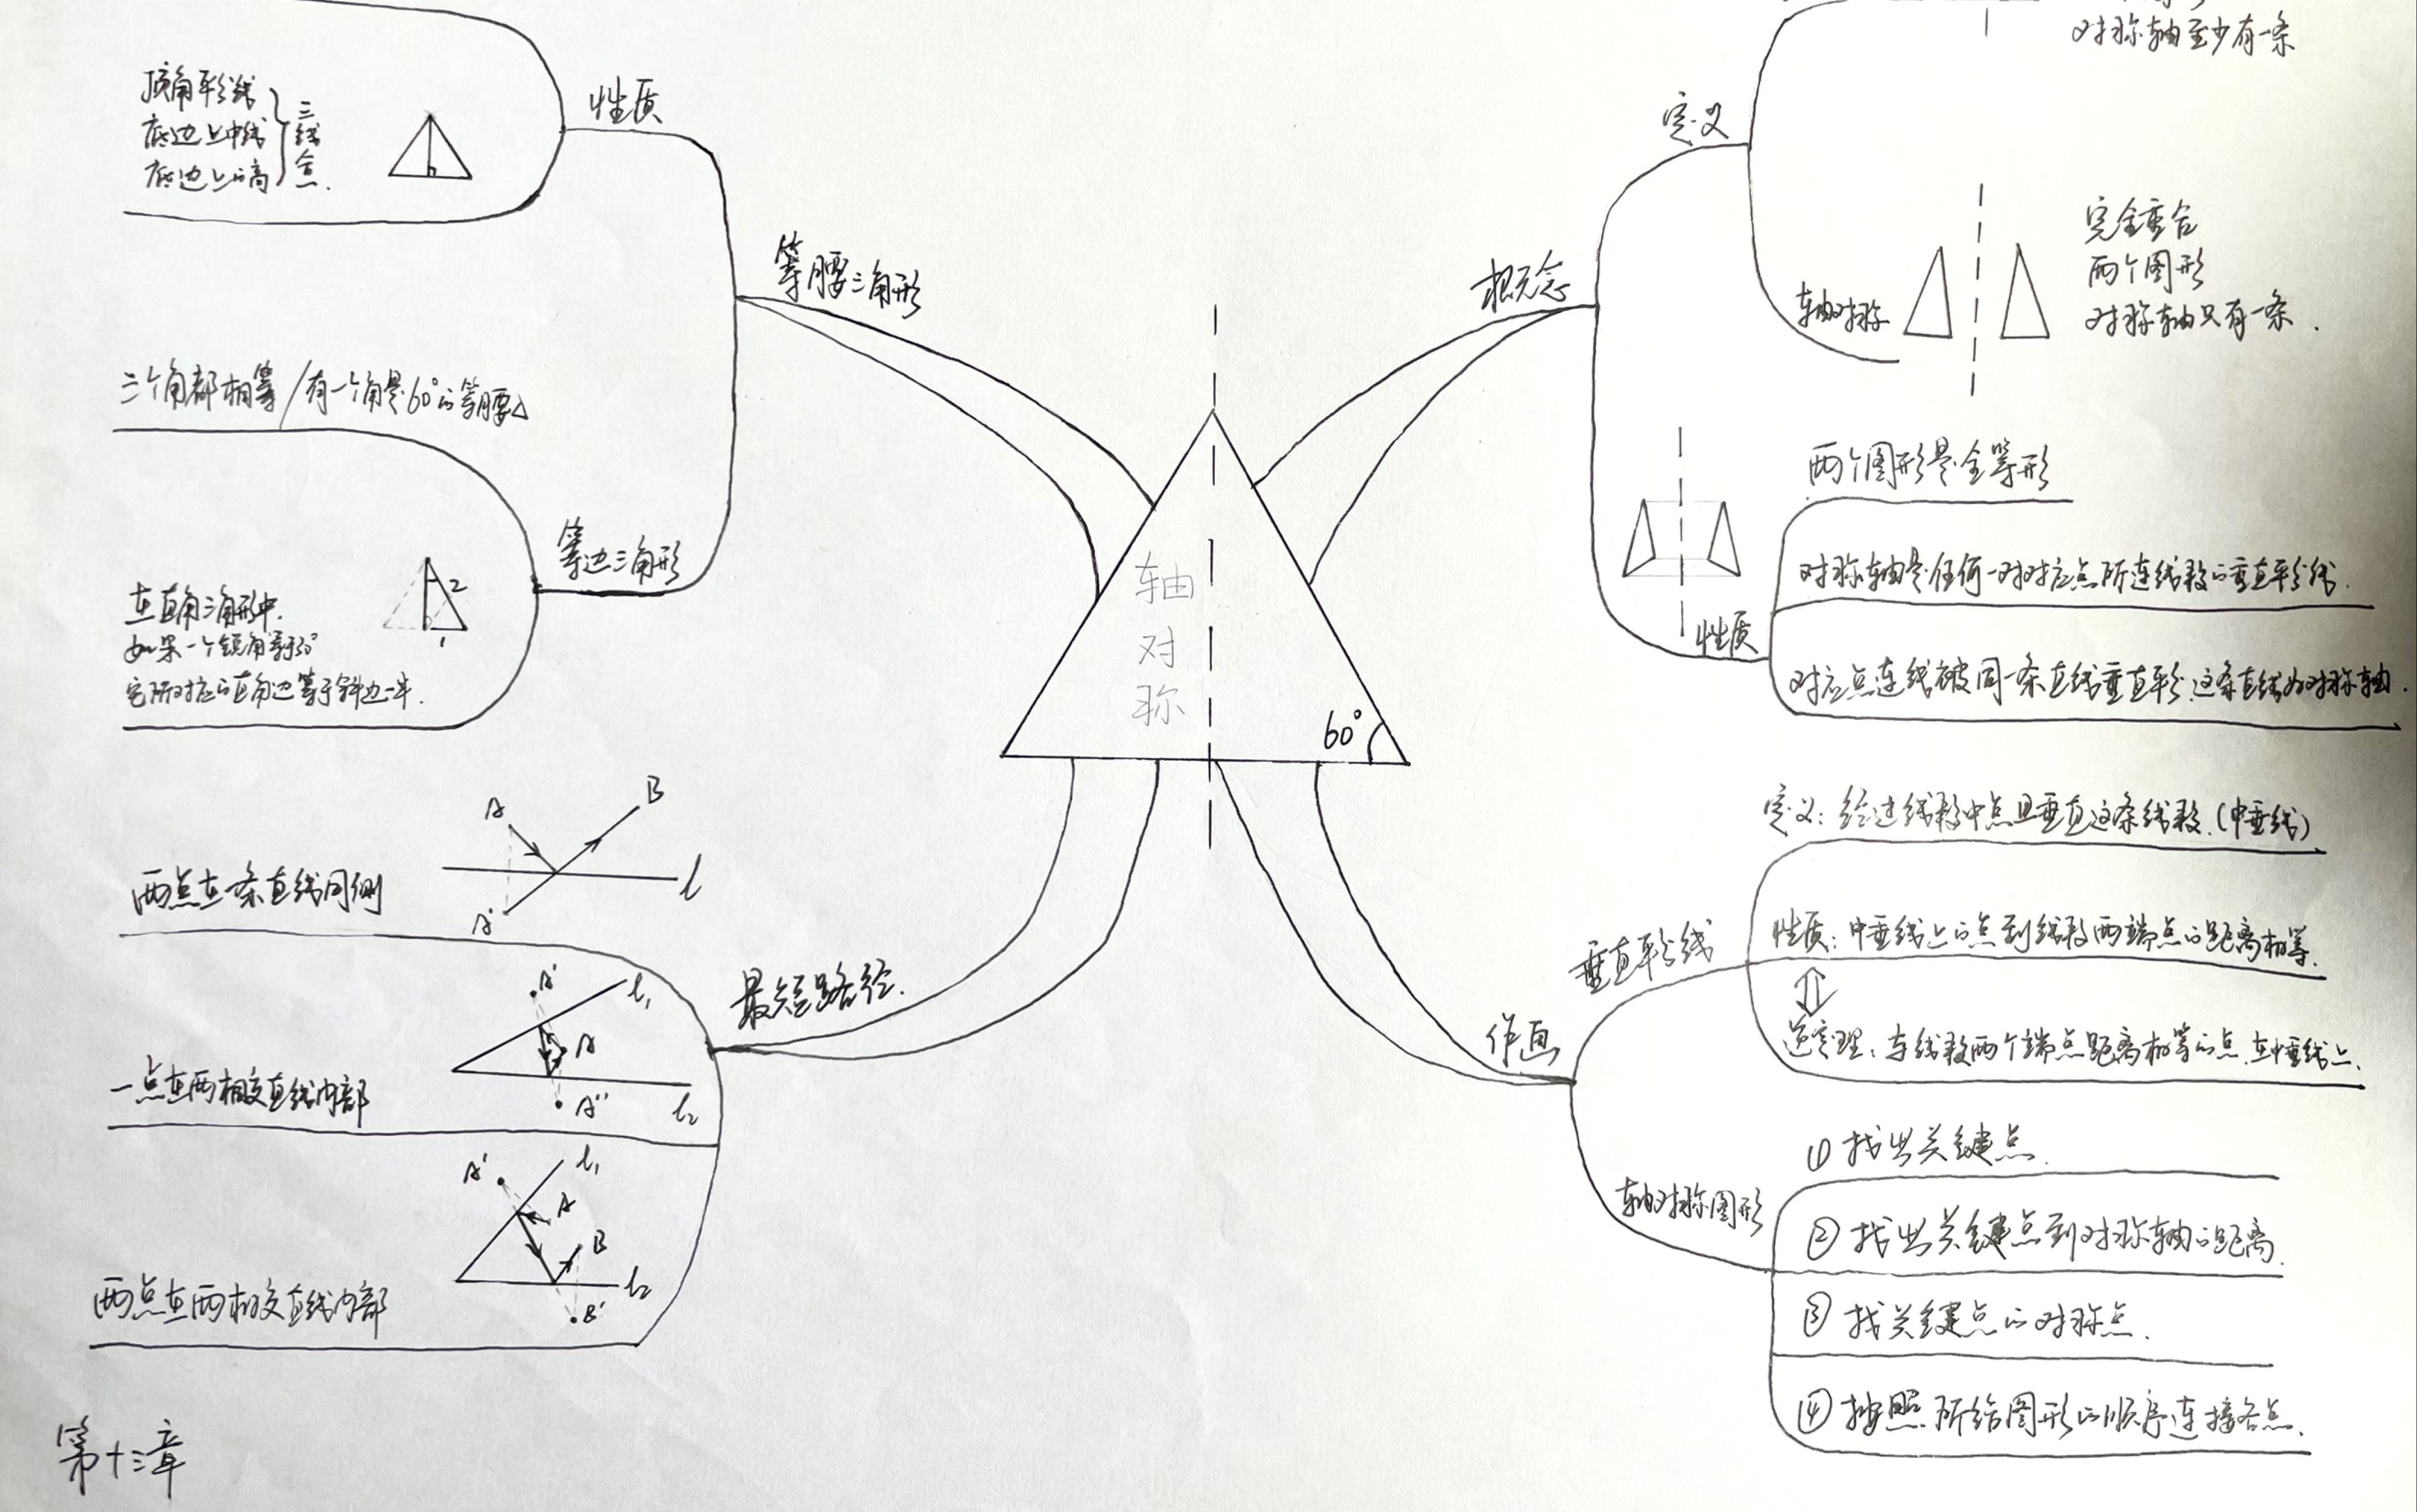 对称轴至少有一条
定义
完全重合
两个图形
对称轴只有一条.
轴对称
概念
两个图形是全等形
对称轴是任何一对对应点所连线段的垂直平分线.
性质
对应点连线被同一条直线垂直平分,这条直线叫对称轴.
性质
顶角平分线
底边上中线
底边上的高
三线合一.
等腰三角形
三个角都相等/有一个角是60°的等腰△
等边三角形
2
1
在直角三角形中.
如果一个锐角等于30°
它所对应的直角边等于斜边一半.
轴对称
60°
A
B
l
A'
两点在一条直线同侧
最短路径.
A'
l₁
A
A''
l₂
一点在两相交直线内部
A'
l₁
A
B
l₂
B'
两点在两相交直线内部
作画
垂直平分线
定义:经过线段中点且垂直这条线段.(中垂线)
性质:中垂线上的点到线段两端点的距离相等.
逆定理:与线段两个端点距离相等的点.在中垂线上.
轴对称图形
① 找出关键点.
② 找出关键点到对称轴的距离.
③ 找关键点的对称点.
④ 按照所给图形的顺序连接各点.
第十三章